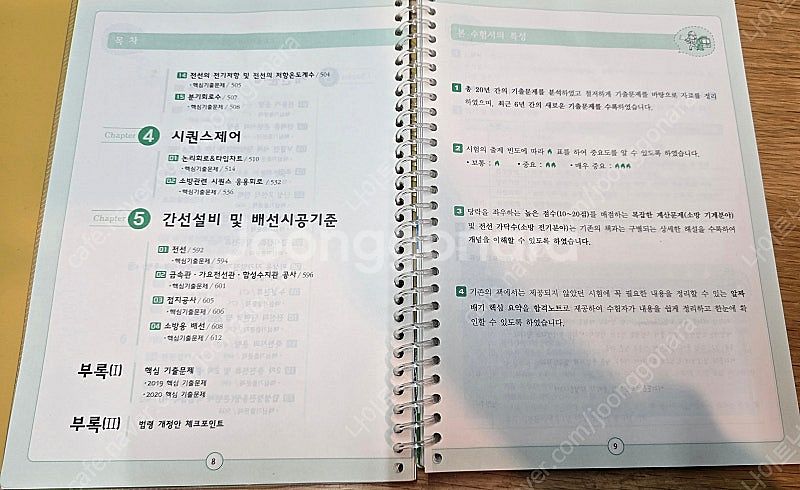 목 차
14 전선의 전기저항 및 전선의 저항온도계수 / 504
• 핵심기출문제 / 505
15 분기회로수 / 507
• 핵심기출문제 / 508
Chapter 4 시퀀스제어
01 논리회로&타임차트 / 510
• 핵심기출문제 / 514
02 소방관련 시퀀스 응용회로 / 532
• 핵심기출문제 / 536
Chapter 5 간선설비 및 배선시공기준
01 전선 / 592
• 핵심기출문제 / 594
02 금속관 · 가요전선관 · 합성수지관 공사 / 596
• 핵심기출문제 / 601
03 접지공사 / 605
• 핵심기출문제 / 606
04 소방용 배선 / 608
• 핵심기출문제 / 612
부록(I) 핵심 기출문제
• 2019 핵심 기출문제
• 2020 핵심 기출문제
부록(II) 법령 개정안 체크포인트
8
본 수험서의 특성
1 총 20년 간의 기출문제를 분석하였고 철저하게 기출문제를 바탕으로 자료를 정리
하였으며, 최근 6년 간의 새로운 기출문제를 수록하였습니다.
2 시험의 출제 빈도에 따라 표를 하여 중요도를 알 수 있도록 하였습니다.
• 보통 : • 중요 : • 매우 중요 :
3 당락을 좌우하는 높은 점수(10~20점)를 배점하는 복잡한 계산문제(소방 기계분야)
및 전선 가닥수(소방 전기분야)는 기존의 책과는 구별되는 상세한 해설을 수록하여
개념을 이해할 수 있도록 하였습니다.
4 기존의 책에서는 제공되지 않았던 시험에 꼭 필요한 내용을 정리할 수 있는 알짜
배기 핵심 요약을 합격노트로 제공하여 수험자가 내용을 쉽게 정리하고 한눈에 확
인할 수 있도록 하였습니다.
9
joonggonara
cafe.naver.com/joonggonara